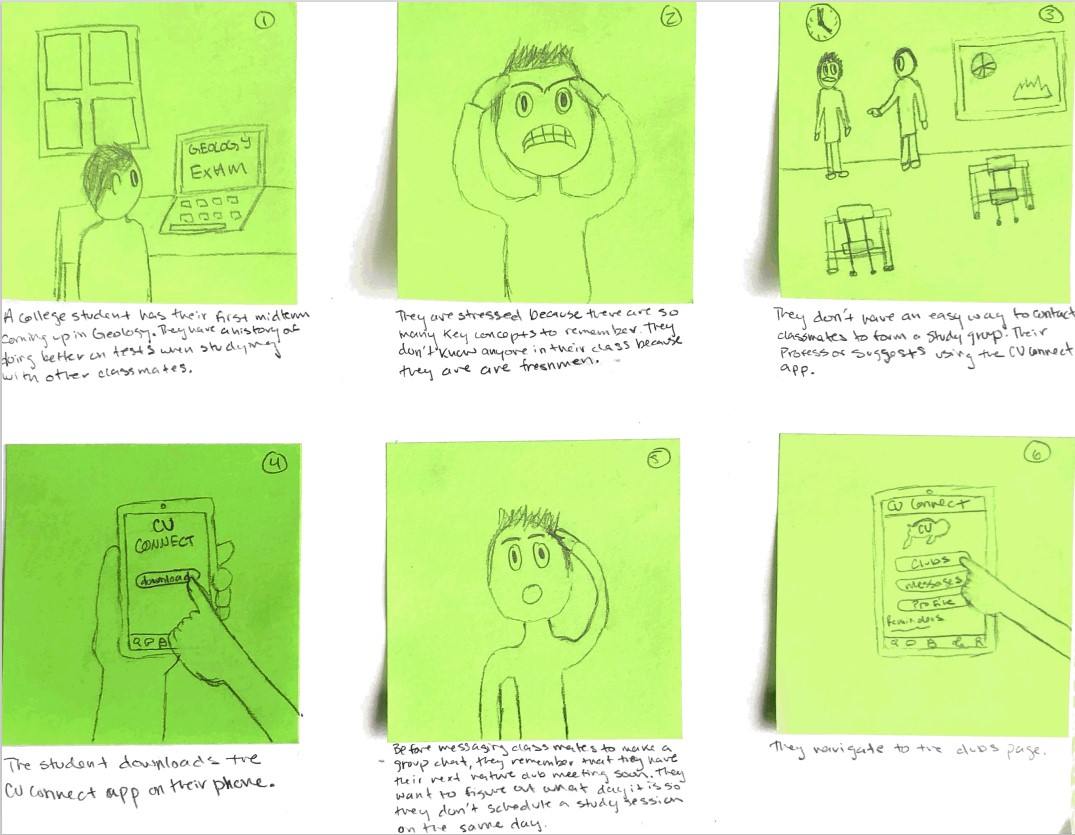 1
GEOLOGY
EXAM
A college student has their first midterm
coming up in Geology. They have a history of
doing better on tests when studying
with other classmates.
2
They are stressed because there are so
many key concepts to remember. They
don't know anyone in their class because
they are are freshmen.
3
They don't have an easy way to contact
classmates to form a study group. Their
Professor suggests using the CU Connect
app.
4
CU
CONNECT
download
The student downloads the
CU Connect app on their phone.
5
Before messaging classmates to make a
group chat, they remember that they have
their next nature club meeting soon. They
want to figure out what day it is so
they don't schedule a study session
on the same day.
6
CU Connect
CU
Clubs
messages
Profile
Reminders
They navigate to the clubs page.